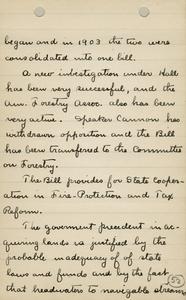 began and in 1903 the two were
consolidated into one bill.
A new investigation under Hall
has been very successful, and the
Am. Forestry Assoc. also has been
very active. Speaker Cannon has
withdrawn opposition and the Bill
has been transferred to the Committee
on Forestry.
The Bill provides for State Cooper-
ation in Fire-Protection and Tax
Reform.
The government precedent in ac-
quiring lands is justified by the
probable inadequacy of of state
laws and funds and by the fact
that headwaters to navigable streams